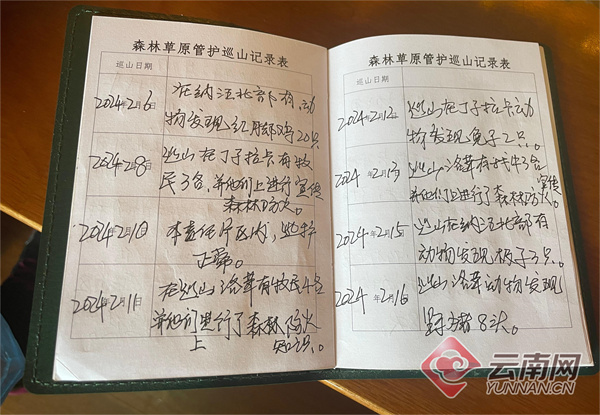 森林草原管护巡山记录表
巡山日期
2024年2月6日
在纳汪北部有动
物发现红脚鸡20只
2024年2月8日
巡山在丁子拉卡有牧
民3名,并他们上进行宣传
森林防火。
2024年2月10日
本责任片区内,监护
正常。
2024年2月11日
在巡山洛茸有牧民4名
并他们进行了森林防火
上 知识。
森林草原管护巡山记录表
巡山日期
2024年2月12日
巡山在丁子拉卡动
物发现兔子2只。
2024年2月13日
巡山洛茸有
3名 宣传
并他们上进行了森林防火。
2024年2月15日
巡山在纳汪北部有
动物发现 子3只。
2024年2月16
巡山洛茸动物发现
野猪8头。
云南网
YUNNAN.CN